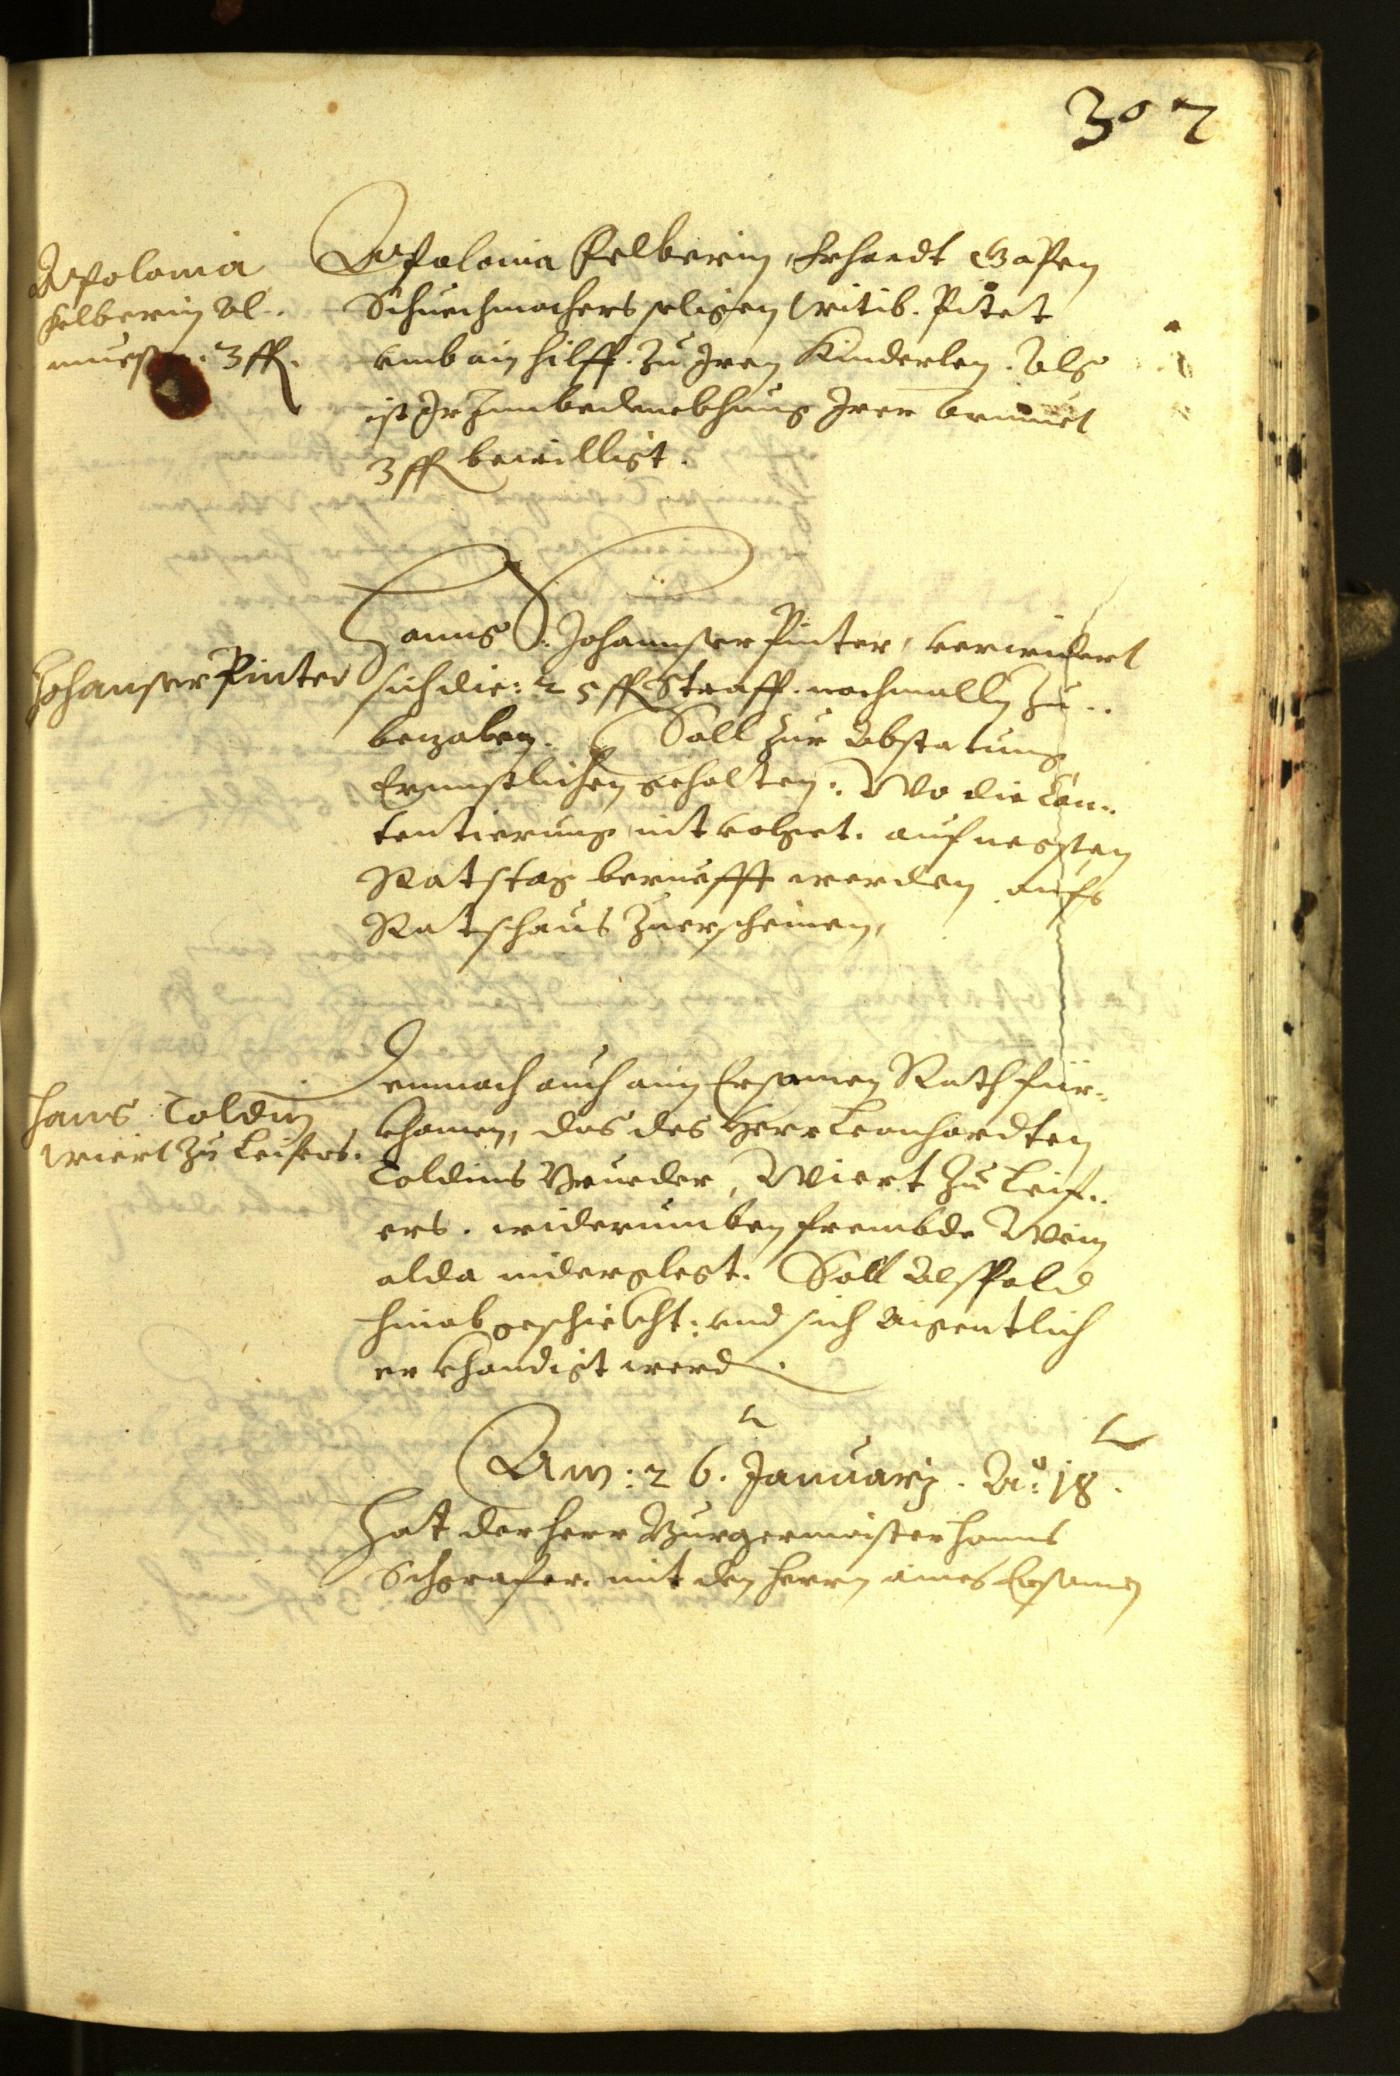 307
Apolonia
Felberin Al-
muesen: 3 fl.
Apolonia Felberin, Erhardt Gassen
Schuechmachers seligen Witib. Pitet
umb ain Hilff. zu Iren Kinderlen. Als
ist Ir Irer Armuet
3 fl bewilligt.
Johanser Pinter
Hanns Johannser Pinter, verwidert
sich die: 25 fl Straff. nochmalln zu
bezalen. Soll zur Abstatung
Ernnstlichen gehalten: Wo die Con-
tentierung nit volget. auf negsten
Ratstag beruefft werden aufs
Ratschaus zuerscheinen,
Hans Coldin
Wiert zu Leifers.
Demnach auch ain Ersamen Rath für-
khomen, das des Herr Leonhardten
Coldins Brueder, Wiert zu Leif-
ers. widerumben frembde Wein
alda nidergelegt. Soll Alspald
hinab geschickht: und sich aigentlich
erkhundigt werd.
Am: 26. Januarj. Ao: 18.
Hat der Herr Burgermaister Hanns
Schgrafer. mit den Herrn aines Ersamen